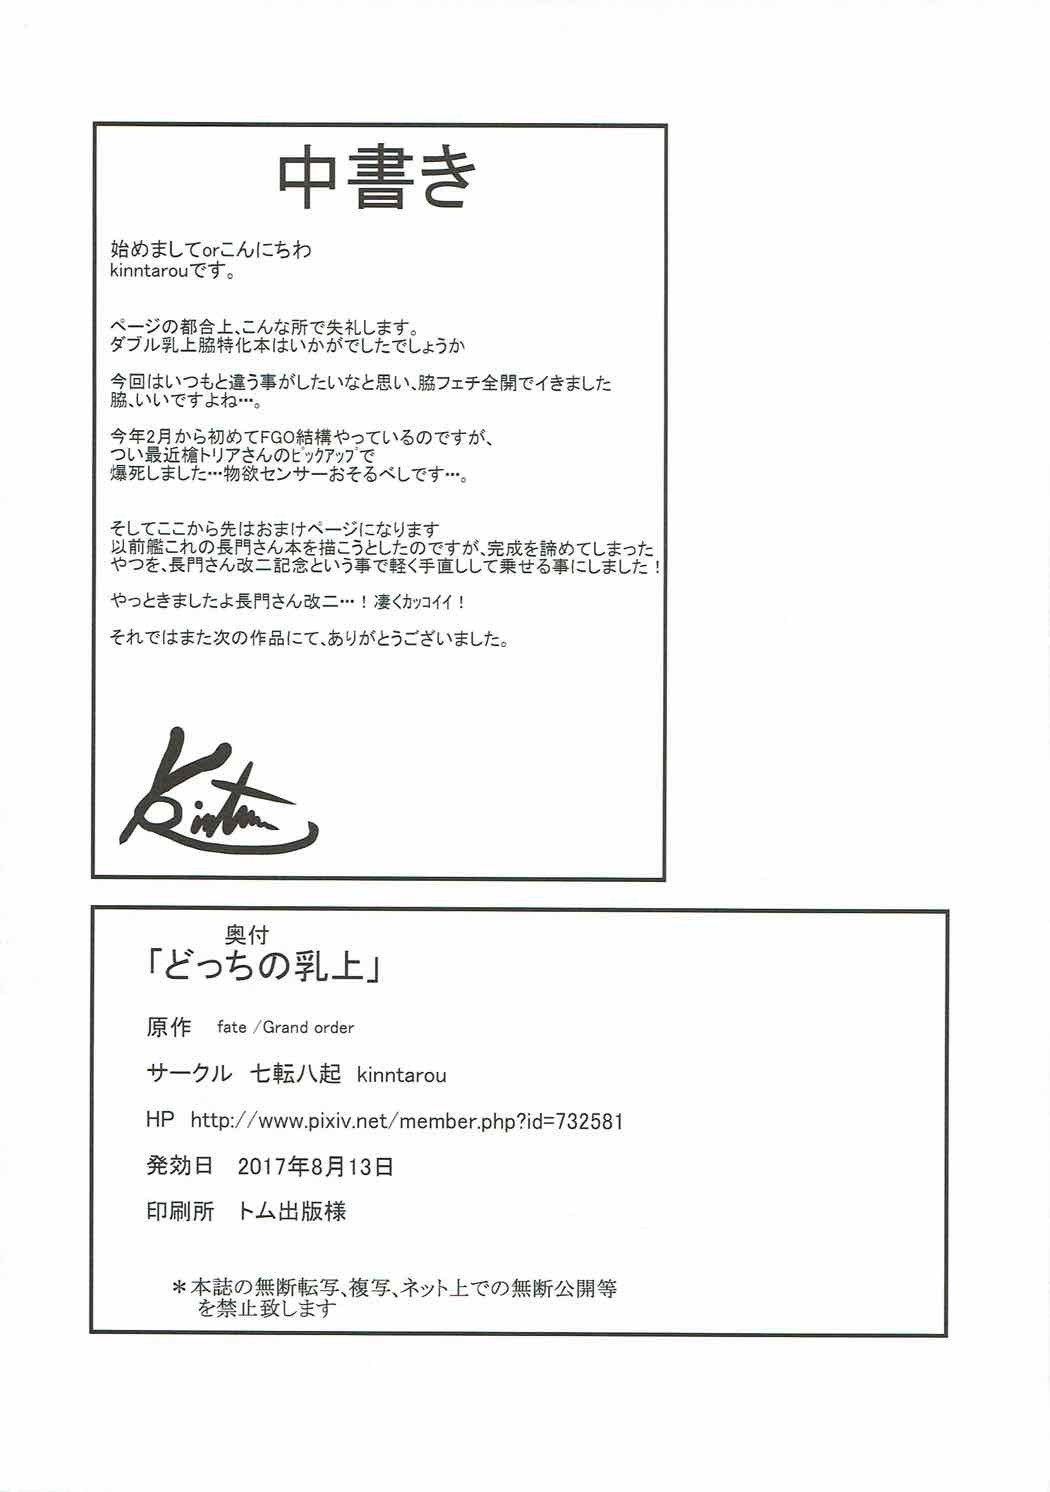 中書き
始めましてorこんにちわ
kinntarouです。
ページの都合上、こんな所で失礼します。
ダブル乳上脇特化本はいかがでしたでしょうか
今回はいつもと違う事がしたいなと思い、脇フェチ全開でイきました
脇、いいですよね…。
今年2月から初めてFGO結構やっているのですが、
つい最近槍トリアさんのﾋﾟｯｸｱｯﾌﾟで
爆死しました…物欲センサーおそるべしです…。
そしてここから先はおまけページになります
以前艦これの長門さん本を描こうとしたのですが、完成を諦めてしまった
やつを、長門さん改二記念という事で軽く手直しして乗せる事にしました！
やっときましたよ長門さん改二…！凄くｶｯｺｲｲ！
それではまた次の作品にて、ありがとうございました。
奥付
「どっちの乳上」
原作 fate /Grand order
サークル 七転八起 kinntarou
HP http://www.pixiv.net/member.php?id=732581
発効日 2017年8月13日
印刷所 トム出版様
＊本誌の無断転写、複写、ネット上での無断公開等
を禁止致します